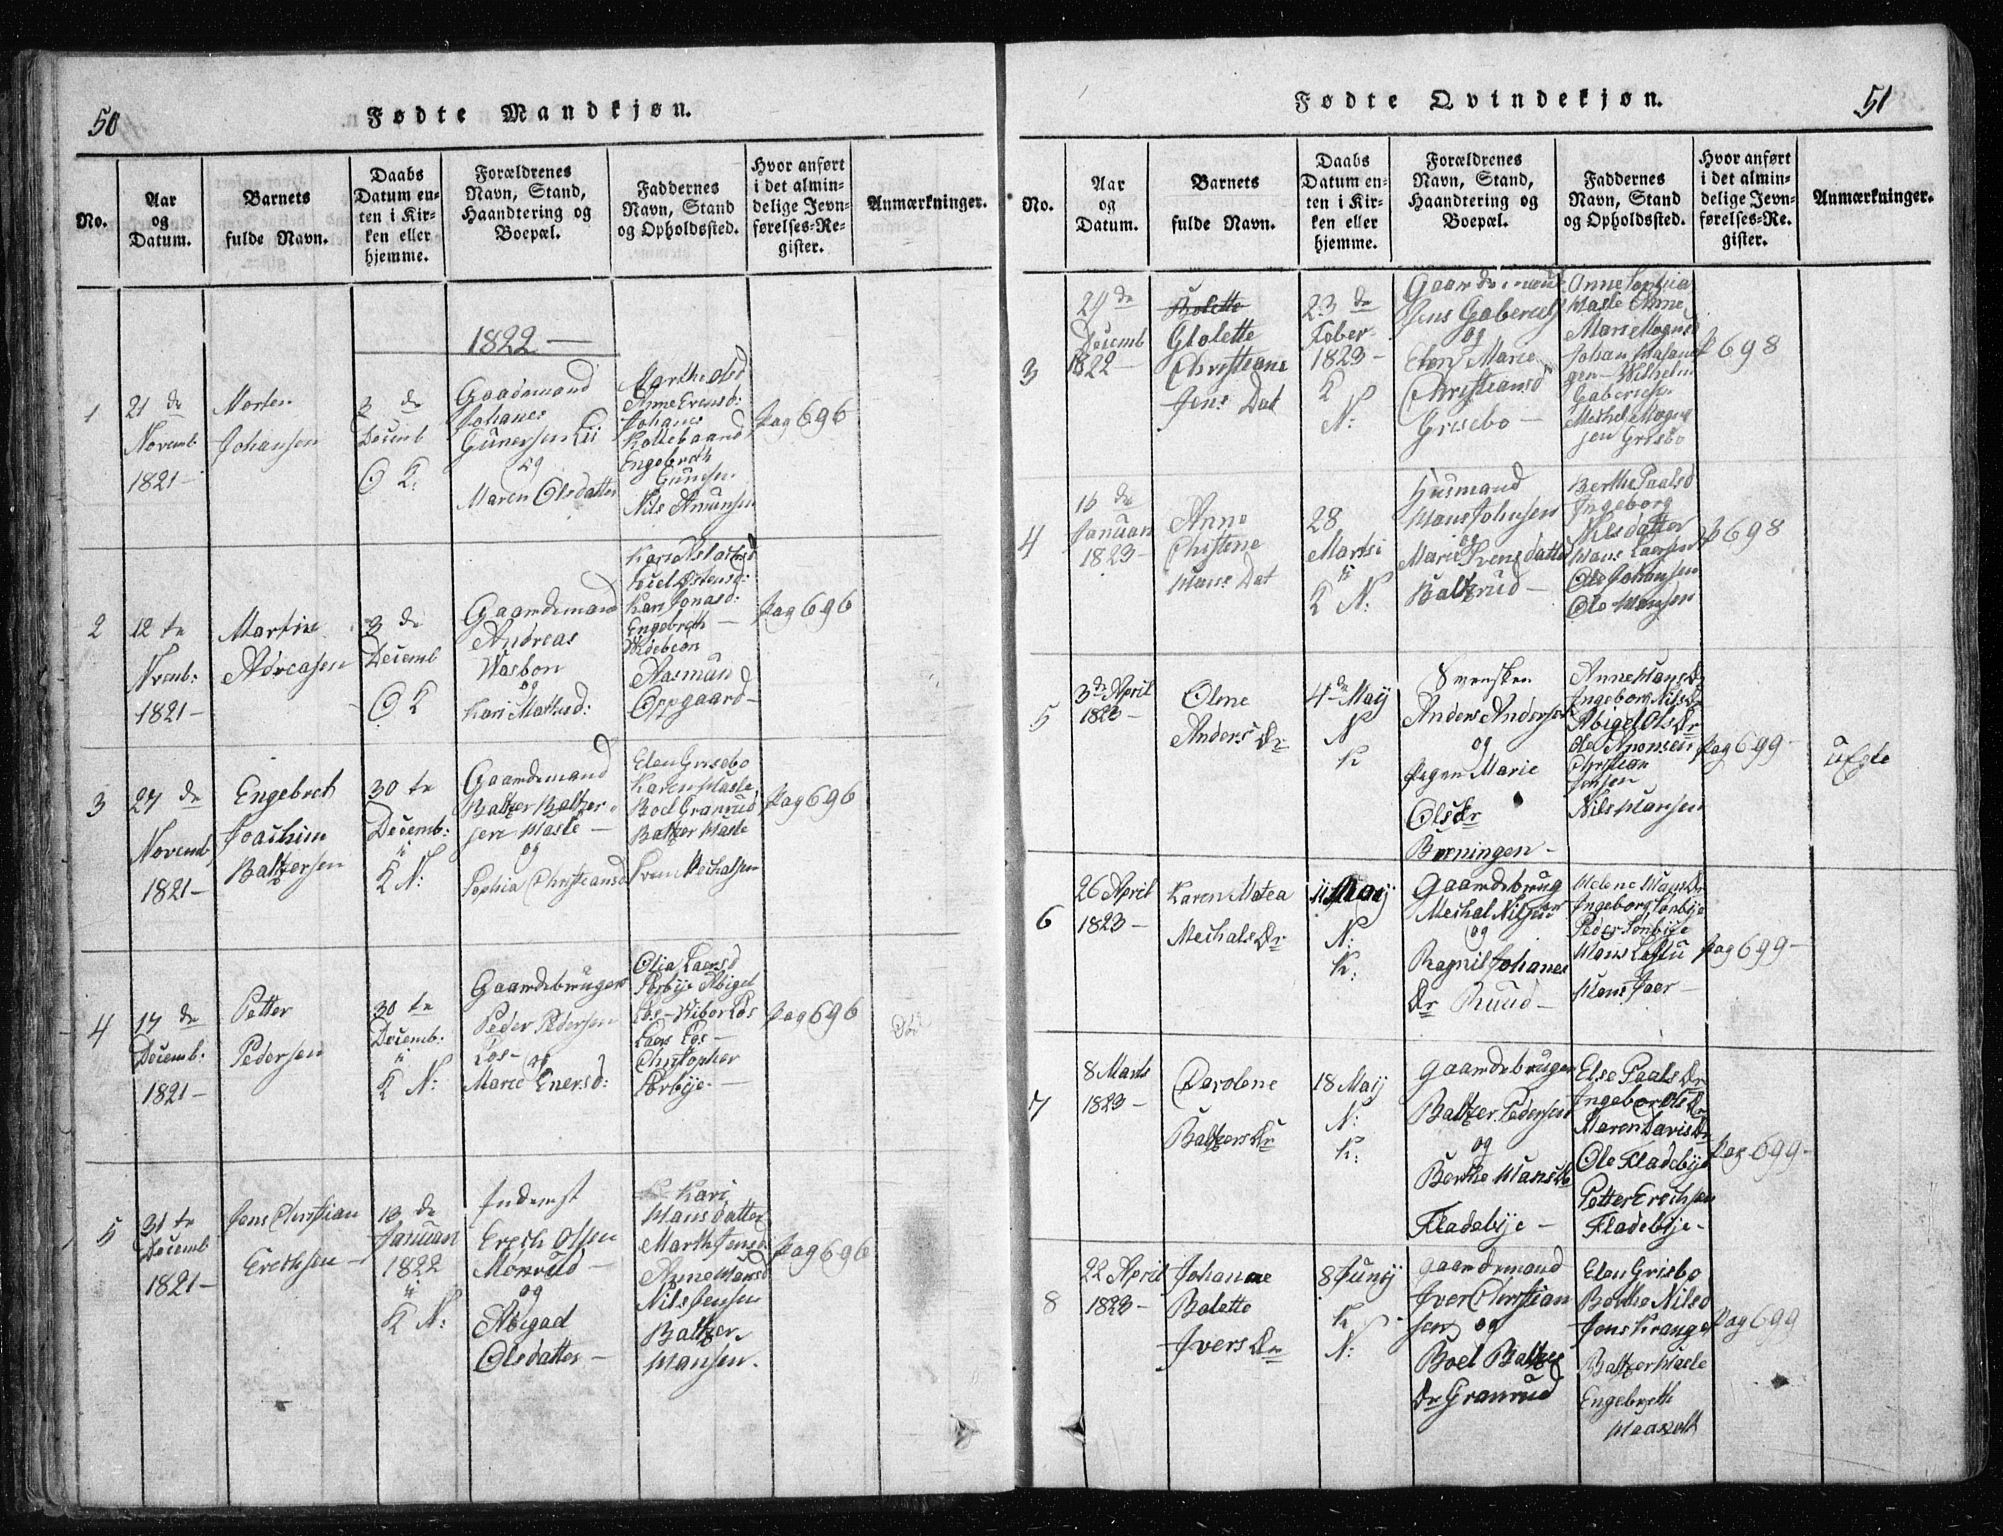 50
Fødte Mandkjøn.
No.
Aar
og
Datum.
Barnets
fulde Navn.
Daabs
Datum en-
ten i Kir-
ken eller
hjemme.
Forældrenes
Navn, Stand,
Haandtering og
Boepæl.
Faddernes
Navn, Stand
og Opholdssted.
Hvor anført
i det almin-
delige Jevn-
førelses-Re-
gister.
Anmærkninger.
1822 —
1
21 de
Novemb
1821 —
Morten
Johansen
2 de
Decemb
K:
Gaardemand
Johanes
Gunersen
og
Maren Olsdatter
Marthe Olsd
Anne Evensd:
Johanes
Kollebaand
Engebreth
Gunersen
Nils Amunsen
Pag 696
2
12 te
Nvemb:
1821 —
Martin
Adreasen
3 de
Decemb
K
Gaardemand
Andreas
Wasbon
og
Kari Mathisd:
Kari Jonasd:
Engebreth —
Widebeon
Rasmun
Oppgaard —
Pag 696
3
27 de
Novemb
1821 —
Engebret
Joachim
Baltzersen
30 te
Decemb:
K N:
Gaardemand
Baltzer Baltzer-
sen Hasle —
og
Sophia Christiansd
Elen Grisebo
Karen Hasle
Boel Granrud
Baltzer Hasle
Sven Mechalsen
Pag 696
4
17 de
Decemb:
1821 —
Petter
Pedersen
30 te
Decemb:
K N:
Gaardebruger
Peder Pedersen
Løs — og
Marie Enersd:
Olia Laersd
Sørbije Abigel
Løs — Wibor Løs
Laers Løs —
Christopher
Sørbije —
Pag 696
Død
5
31 te
Decemb
1821 —
Jens Christian
Erichsen —
13 de
Januari
1822
K N:
Inderst
Erich Olsen
Monrud —
og
Abigad
Olsdatter —
Kari
Hansdatter
Marthe Jensd
Anne Hansd
Nils Jensen
Baltzer
Hansen.
Pag 696
Fødte Qvindekjøn.
51
No.
Aar
og
Datum.
Barnets
fulde Navn.
Daabs
Datum en-
ten i Kir-
ken eller
hjemme.
Forældrenes
Navn, Stand,
Haandtering og
Boepæl.
Faddernes
Navn, Stand
og Opholdssted.
Hvor anført
i det almin-
delige Jevn-
førelses-Re-
gister.
Anmærkninger.
3
24 de
Decemb
1822 —
Bolette
Glolette
Christiane
Jens Dat
23 de
Feber
1823 —
K
N:
Gaardemand
Jens Gabrielsen
og
Elen Marie
Christiansd
Grisebo —
Anne Sophia
Hasle Anne
Marie Magnus
Johan
Wilhelm
Gabrielsen
Michel Magnus
sen Grisbo
P 698
4
15 de
Januari
1823 —
Anne
Christene
Hans Dat
28
Martsi
K N:
Husmand
Hans Johnsen
og
Marie Svensdatter
Baltzrud —
Berthe Paalsd
Ingeborg
Nilsdatter
Hans Laersen
Ole Johansen
Ole Hansen
P 698
5
3de April
1823 —
Olene
Anders Dr
4de Maij
N
K
Svensken
Anders Andersen
og
Jegen Marie
Ols Dr
Børningen —
Anne Hans Dr
Ingeborg Nils Dr
Abigel Ols Dr
Ole Aronsen
Christian
Jensen
Nils Hansen
Pag 699 —
uegte
6
26 April
1823 —
Karen Matea
Mechals Dr
11 Maij
N:
K:
Gaardebrug
Mechal Nilsen
og
Ragnil Johanes
Dr Ruud —
Helene Hans Dr
Ingeborg Sønbije
Peder Sønbije
Hans
Hans Joer —
Pag 699 —
7
8 Marts
1823 —
Dorolene
Baltzers Dr
18 Maij
N:
K:
Gaardebruger
Baltzer Pedersen
og
Berthe Hans Dr
Fladebije —
Else Paals Dr
Ingebor Ols Dr
Maren Davis Dr
Ole Fladebije
Petter Erichsen
Fladebije —
Pag 699 —
8
22 April
1823 —
Johanne
Bolette
Ivers Dr
8 Junij
K
N:
Gaardemand
Iver Christian
sen og
Boel Baltzer
Dr Granrud
Elen Grisbo
Berthe Nilsd
Jens Krange
Baltzer Hasle
Engebreth
Haaxolt
Pag 699